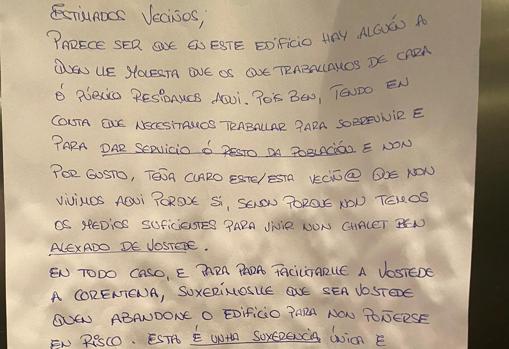 ESTIMADOS VECIÑOS;
PARECE SER QUE EN ESTE EDIFICIO HAY ALGUÉN A
QUEN LLE MOLESTA QUE OS QUE TRABALLAMOS DE CARA
Ó PÚBLICO RESIDAMOS AQUI. POIS BEN, TENDO EN
CONTA QUE NECESITAMOS TRABALLAR PARA SOBREVIVIR E
PARA DAR SERVICIO Ó RESTO DA POBLACIÓN E NON
POR GUSTO, TEÑA CLARO ESTE/ESTA VECIÑ@ QUE NON
VIVIMOS AQUI PORQUE SI, SENON PORQUE NON TEMOS
OS MEDIOS SUFICIENTES PARA VIVIR NUN CHALET BEN
ALEXADO DE VOSTEDE.
EN TODO CASO, E PARA PARA FACILITARLLE A VOSTEDE
A CORENTENA, SUXERÍMOSLLE QUE SEXA VOSTEDE
QUEN ABANDONE O EDIFICIO PARA NON POÑERSE
EN RISCO. ESTA É UNHA SUXERENCIA ÚNICA E